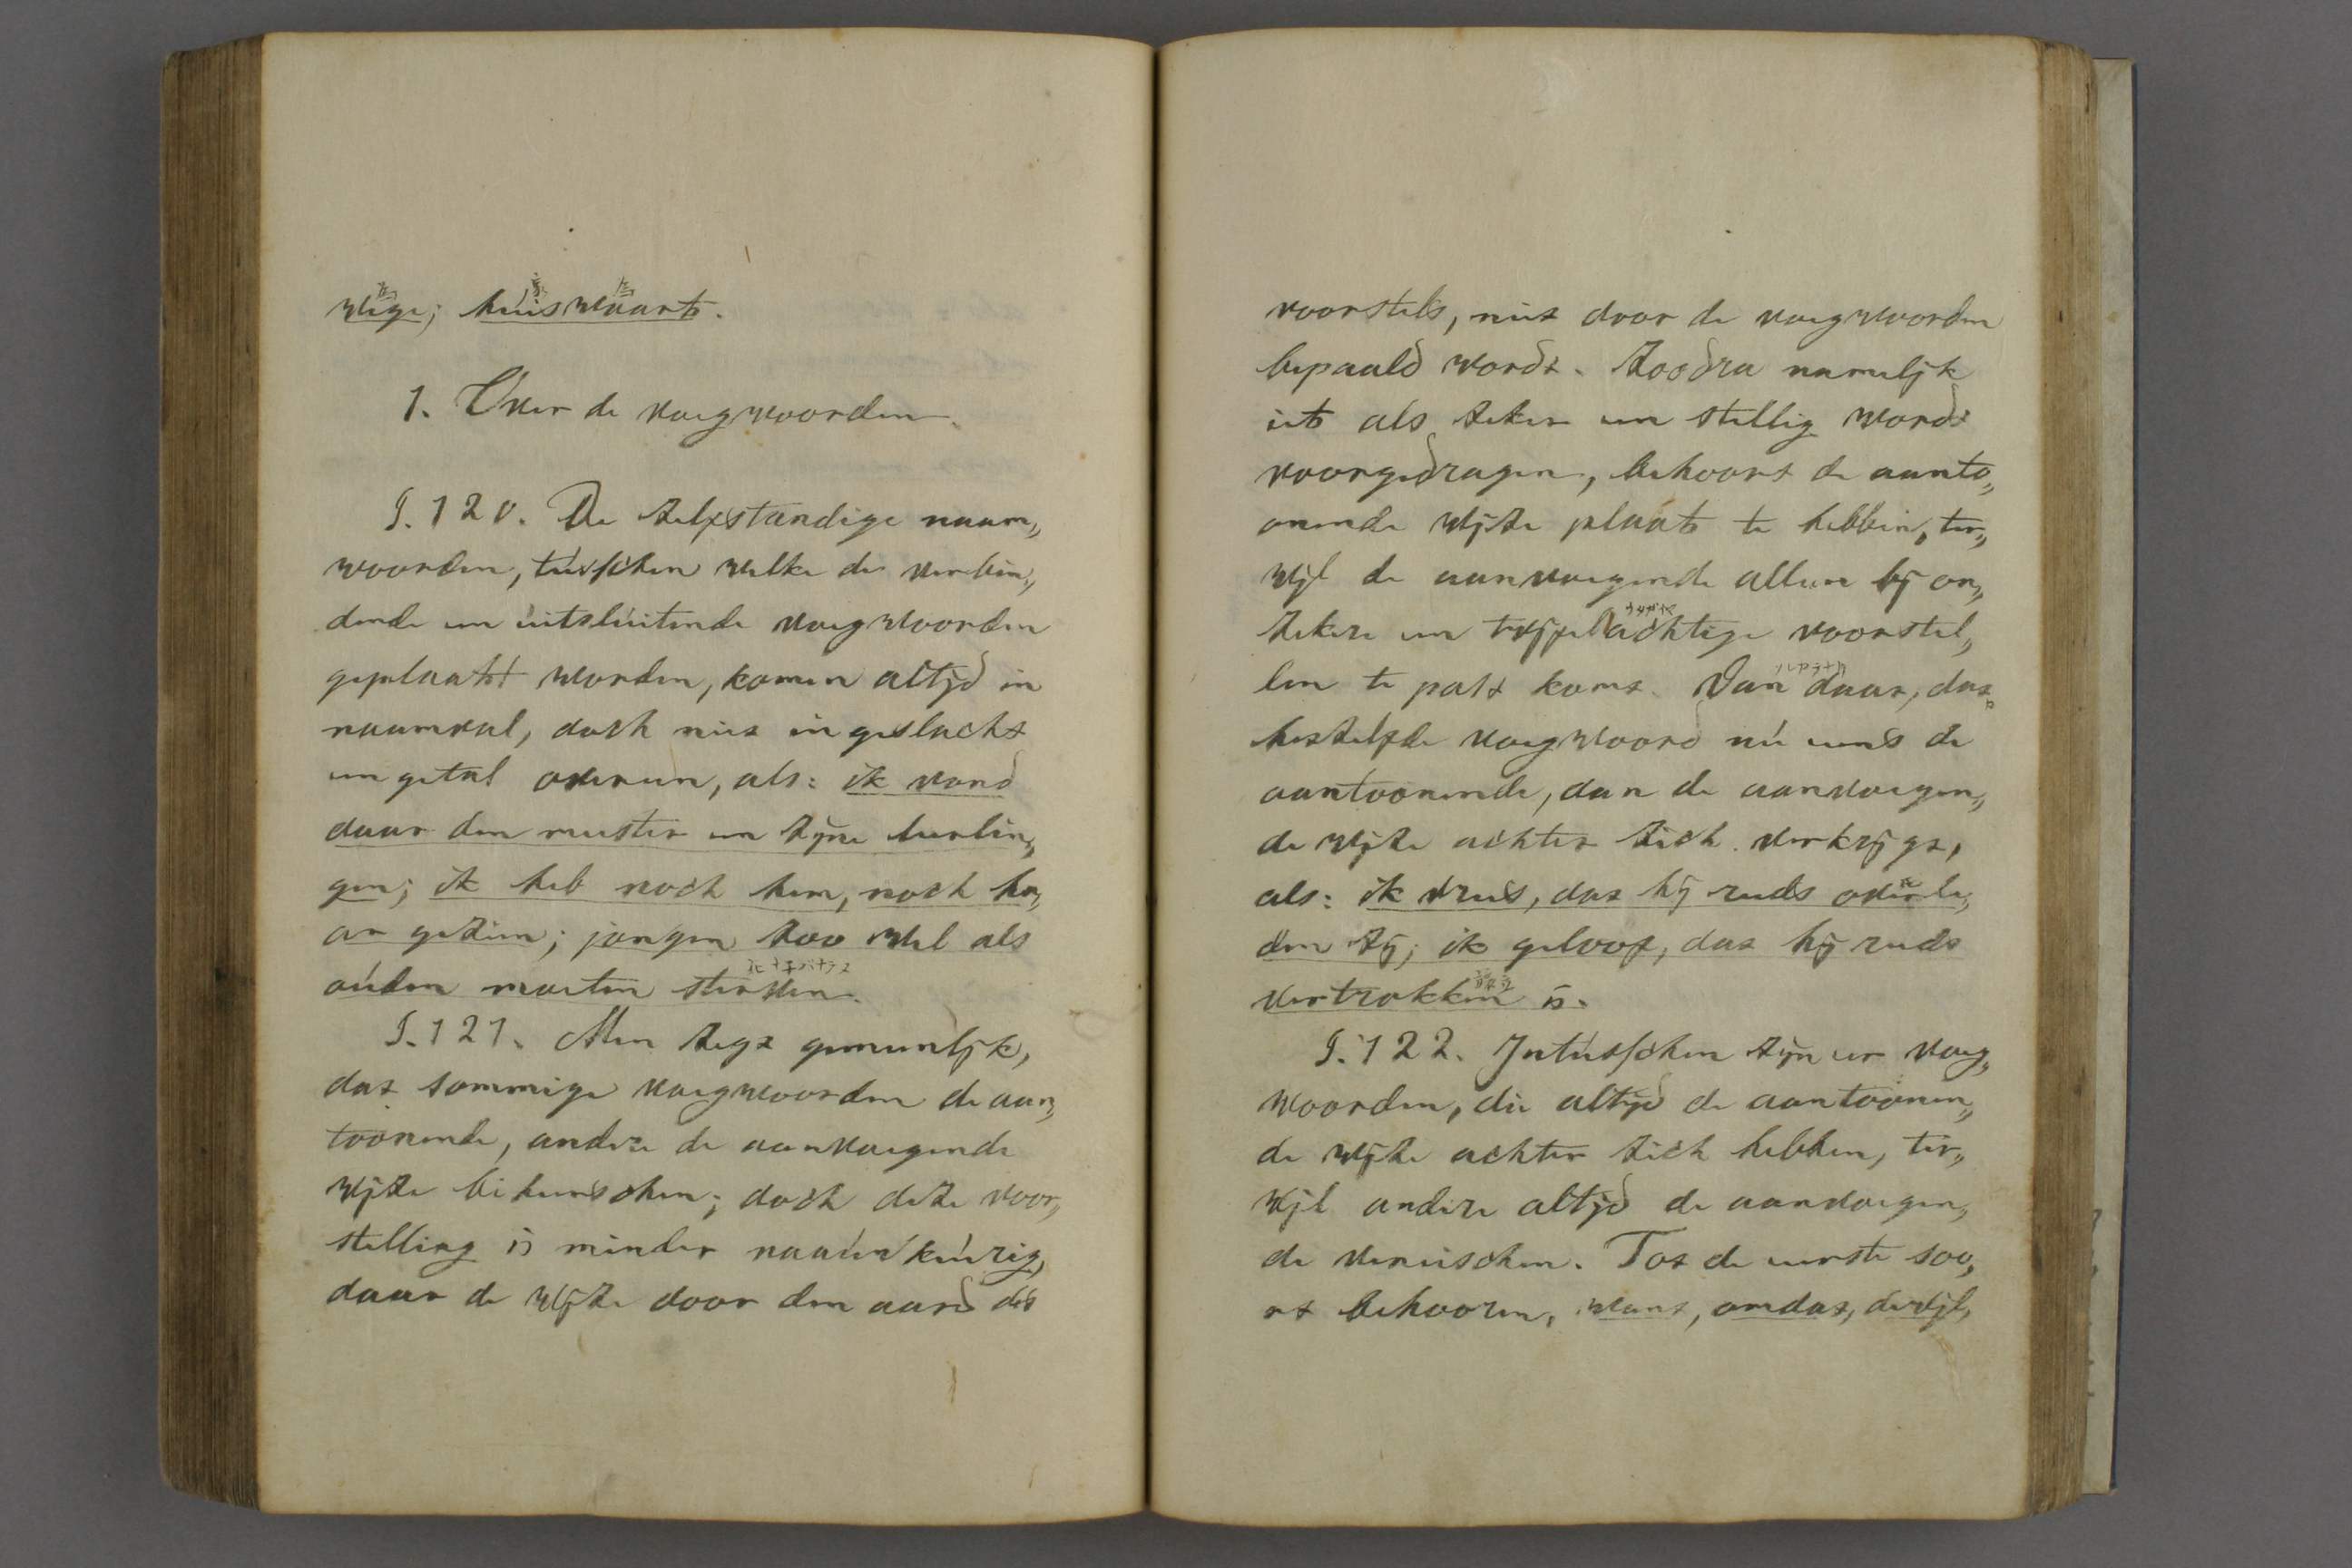 wege; huiswaarts.
1. Over de voegwoorden.
§. 120. De zelfstandige naam„
woorden, tusschen welke de verbin„
dende en uitsluitende voegwoorden
geplaatst worden, komen altijd in
naamval, doch niet in geslacht
en getal overeen, als: ik vond
daar den meester en zijne leerlin„
gen; ik heb noch hem, noch ha„
ar gezien; jongen zoo wel als
ouden moeten sterven.
§. 121. Men zegt gemeenlijk,
dat sommige voegwoorden de aan„
toonende, andere de aanvoegende
wijze beheerschen; doch deze voor„
stelling is minder naauwkeurig,
daar de wijze door den aard des
voorstels, niet door de voegwoorden
bepaald wordt. Zoodra namelijk
iets als zeker en stellig wordt
voorgedragen, behoort de aanto„
onende wijze plaats te hebben, ter„
wijl de aanvoegende alleen bij on„
zekere en twijfelachtige voorstel„
len te past komt. Van daar, dat
hetzelfde voegwoord nu eens de
aantoonende, dan de aanvoegen„
de wijze achter zich verkrijgt,
als: ik vrees, dat hij reeds overle„
den zij; ik geloof, dat hij reeds
vertrokken is.
§. 122. Intusschen zijn er voeg„
woorden, die altijd de aantoonen„
de wijze achter zich hebben, ter„
wijl andere altijd de aanvoegen„
de vereischen. Tot de eerste soo„
rt behooren, want, omdat, dewijl,